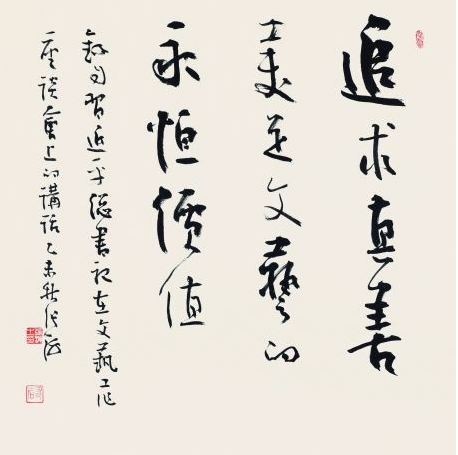 追求真善
美是文藝的
永恒價值
錄自習近平總書記在文藝工作
座談會上的講話乙未秋張海